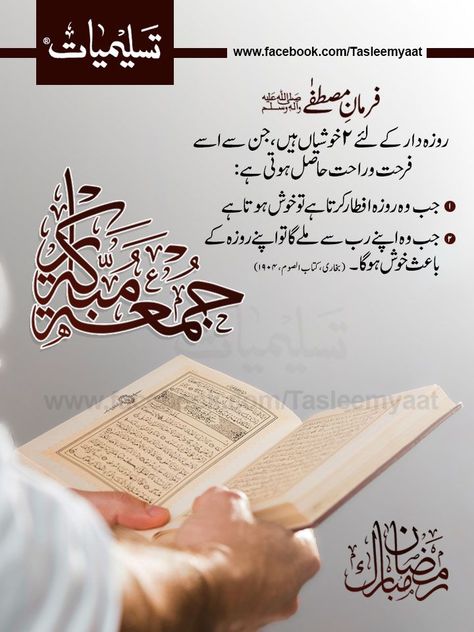 تسلیمیات®
www.facebook.com/Tasleemyaat
فرمانِ مصطفےٰ صلی اللہ علیہ وآلہ وسلم
روزہ دار کے لئے ۲ خوشیاں ہیں، جن سے اسے
فرحت و راحت حاصل ہوتی ہے:
۱ جب وہ روزہ افطار کرتا ہے تو خوش ہوتا ہے
۲ جب وہ اپنے رب سے ملے گا تو اپنے روزہ کے
باعث خوش ہوگا۔ (بخاری، کتاب الصوم، ۱۹۰۴)
جمعۃ مبارکۃ
تسلیمیات
www.facebook.com/Tasleemyaat
رمضان مبارك